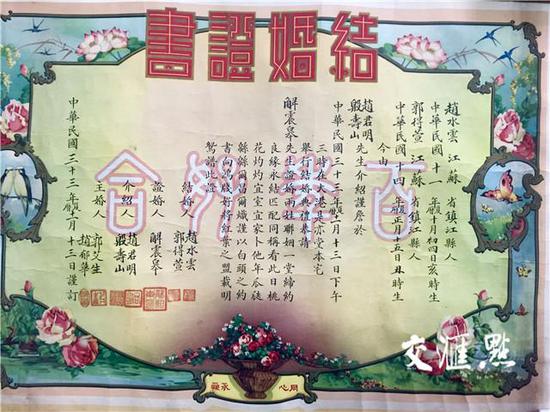 結婚證書
趙水雲 江蘇省鎮江縣人
中華民國十一年曆十月初四日亥時生
郭得萱 江蘇省鎮江縣人
中華民國十四年曆正月十五日丑時生
今由
趙君明
殷壽山 先生介紹謹詹於
中華民國三十三年曆月十三日下午
三時在大港堂本宅
舉行結婚典禮恭請
解震皋先生證婚兩姓聯姻一堂締約
良緣永結匹配同稱看此日桃
花灼灼宜室宜家卜他年瓜瓞
緜緜爾昌爾熾謹以白頭之約
書向鴻箋好將紅葉之盟載明
鴛譜此證
結婚人 趙水雲 郭得萱
證婚人 解震皋
介紹人 趙君明 殷壽山
主婚人 郭艾生 趙郁華
中華民國三十三年曆十一月十三日謹訂
同心
交滙點